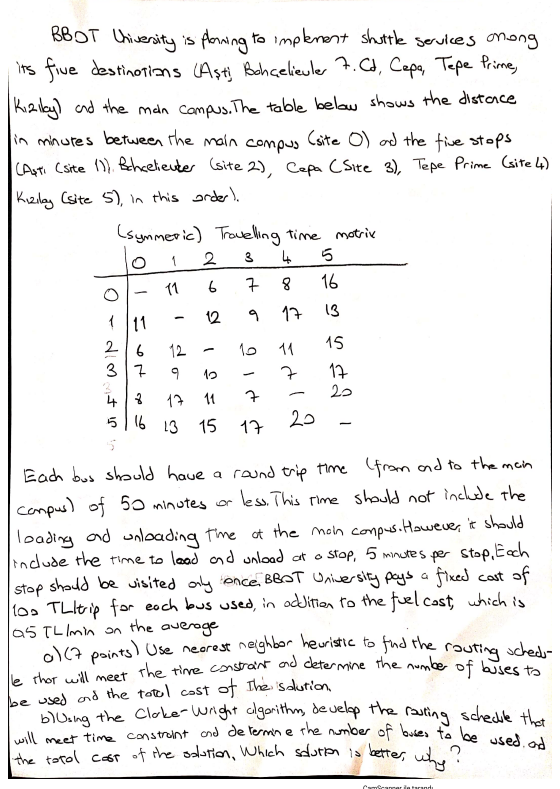 BBOT University is planing to implement shuttle services among
its five destinations (Aşti, Bahçelievler 7.Cd, Cepa, Tepe Prime,
Kızılay) and the main campus. The table below shows the distance
in minutes between the main campus (site 0) and the five stops
(Aşti (site 1), Bahcelievler (site 2), Cepa (Site 3), Tepe Prime (site 4)
Kızılay (site 5), in this order).
(symmetric) Travelling time matrix
0 1 2 3 4 5
0 - 11 6 7 8 16
1 11 - 12 9 17 13
2 6 12 - 10 11 15
3 7 9 10 - 7 17
4 8 17 11 7 - 20
5 16 13 15 17 20 -
5
Each bus should have a round trip time (from and to the main
campus) of 50 minutes or less. This time should not include the
loading and unloading time at the main campus. However, it should
include the time to load and unload at a stop, 5 minutes per stop. Each
stop should be visited only once. BBOT University pays a fixed cost of
100 TL/trip for each bus used, in addition to the fuel cost, which is
0.5 TL/min on the average
a) (7 points) Use nearest neighbor heuristic to find the routing schedu-
le that will meet the time constraint and determine the number of buses to
be used and the total cost of the solution.
b) Using the Clarke-Wright algorithm, develop the routing schedule that
will meet time constraint and determine the number of buses to be used and
the total cost of the solution. Which solution is better, why?
CamScanner ile tarandı